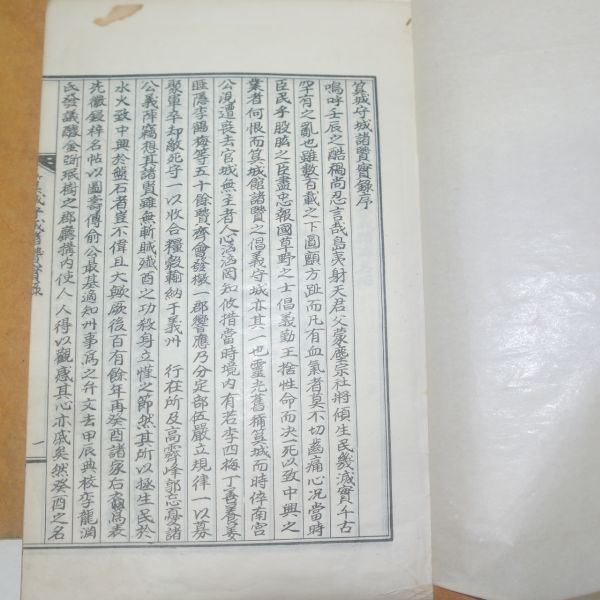 箕城守城諸賢實錄序
嗚呼壬辰之酷禍尚忍言哉島夷射天君父蒙塵宗社將傾生民幾滅實千古
罕有之亂也雖數百載之下圓顱方趾而凡有血氣者莫不切齒痛心况當時
臣民乎股肱之臣盡忠報國草野之士倡義勤王捨性命而决死以致中興之
業者何恨而箕城館諸賢之倡義守城亦其一也靈光舊稱箕城而時倅南宮
公浼遭喪去官城無主者人心洶洶罔知攸措當時境內有若李四梅丁善養姜
睡隱李錫梅等五十餘賢齊會發檄一郡響應乃分定部伍嚴立規律一以募
聚軍卒却敵死守一以收合糧穀輸納于義州 行在所及高霽峰郭忘憂諸
公義陣竊想其諸賢雖無斬賊殪酋之功殺身立慬之節然其所以拯生民於
水火致中興於盤石者豈不偉且大歟厥後百有餘年再癸酉諸家右裔爲表
先徽鋟梓名帖以圖壽傳俞公最基適知州事爲之弁文去甲辰典校李龍淵
氏發議醵金斲珉樹之郡廳搆內使人人得以觀感其心亦戚矣然癸酉之名
箕城守城諸賢實錄
一